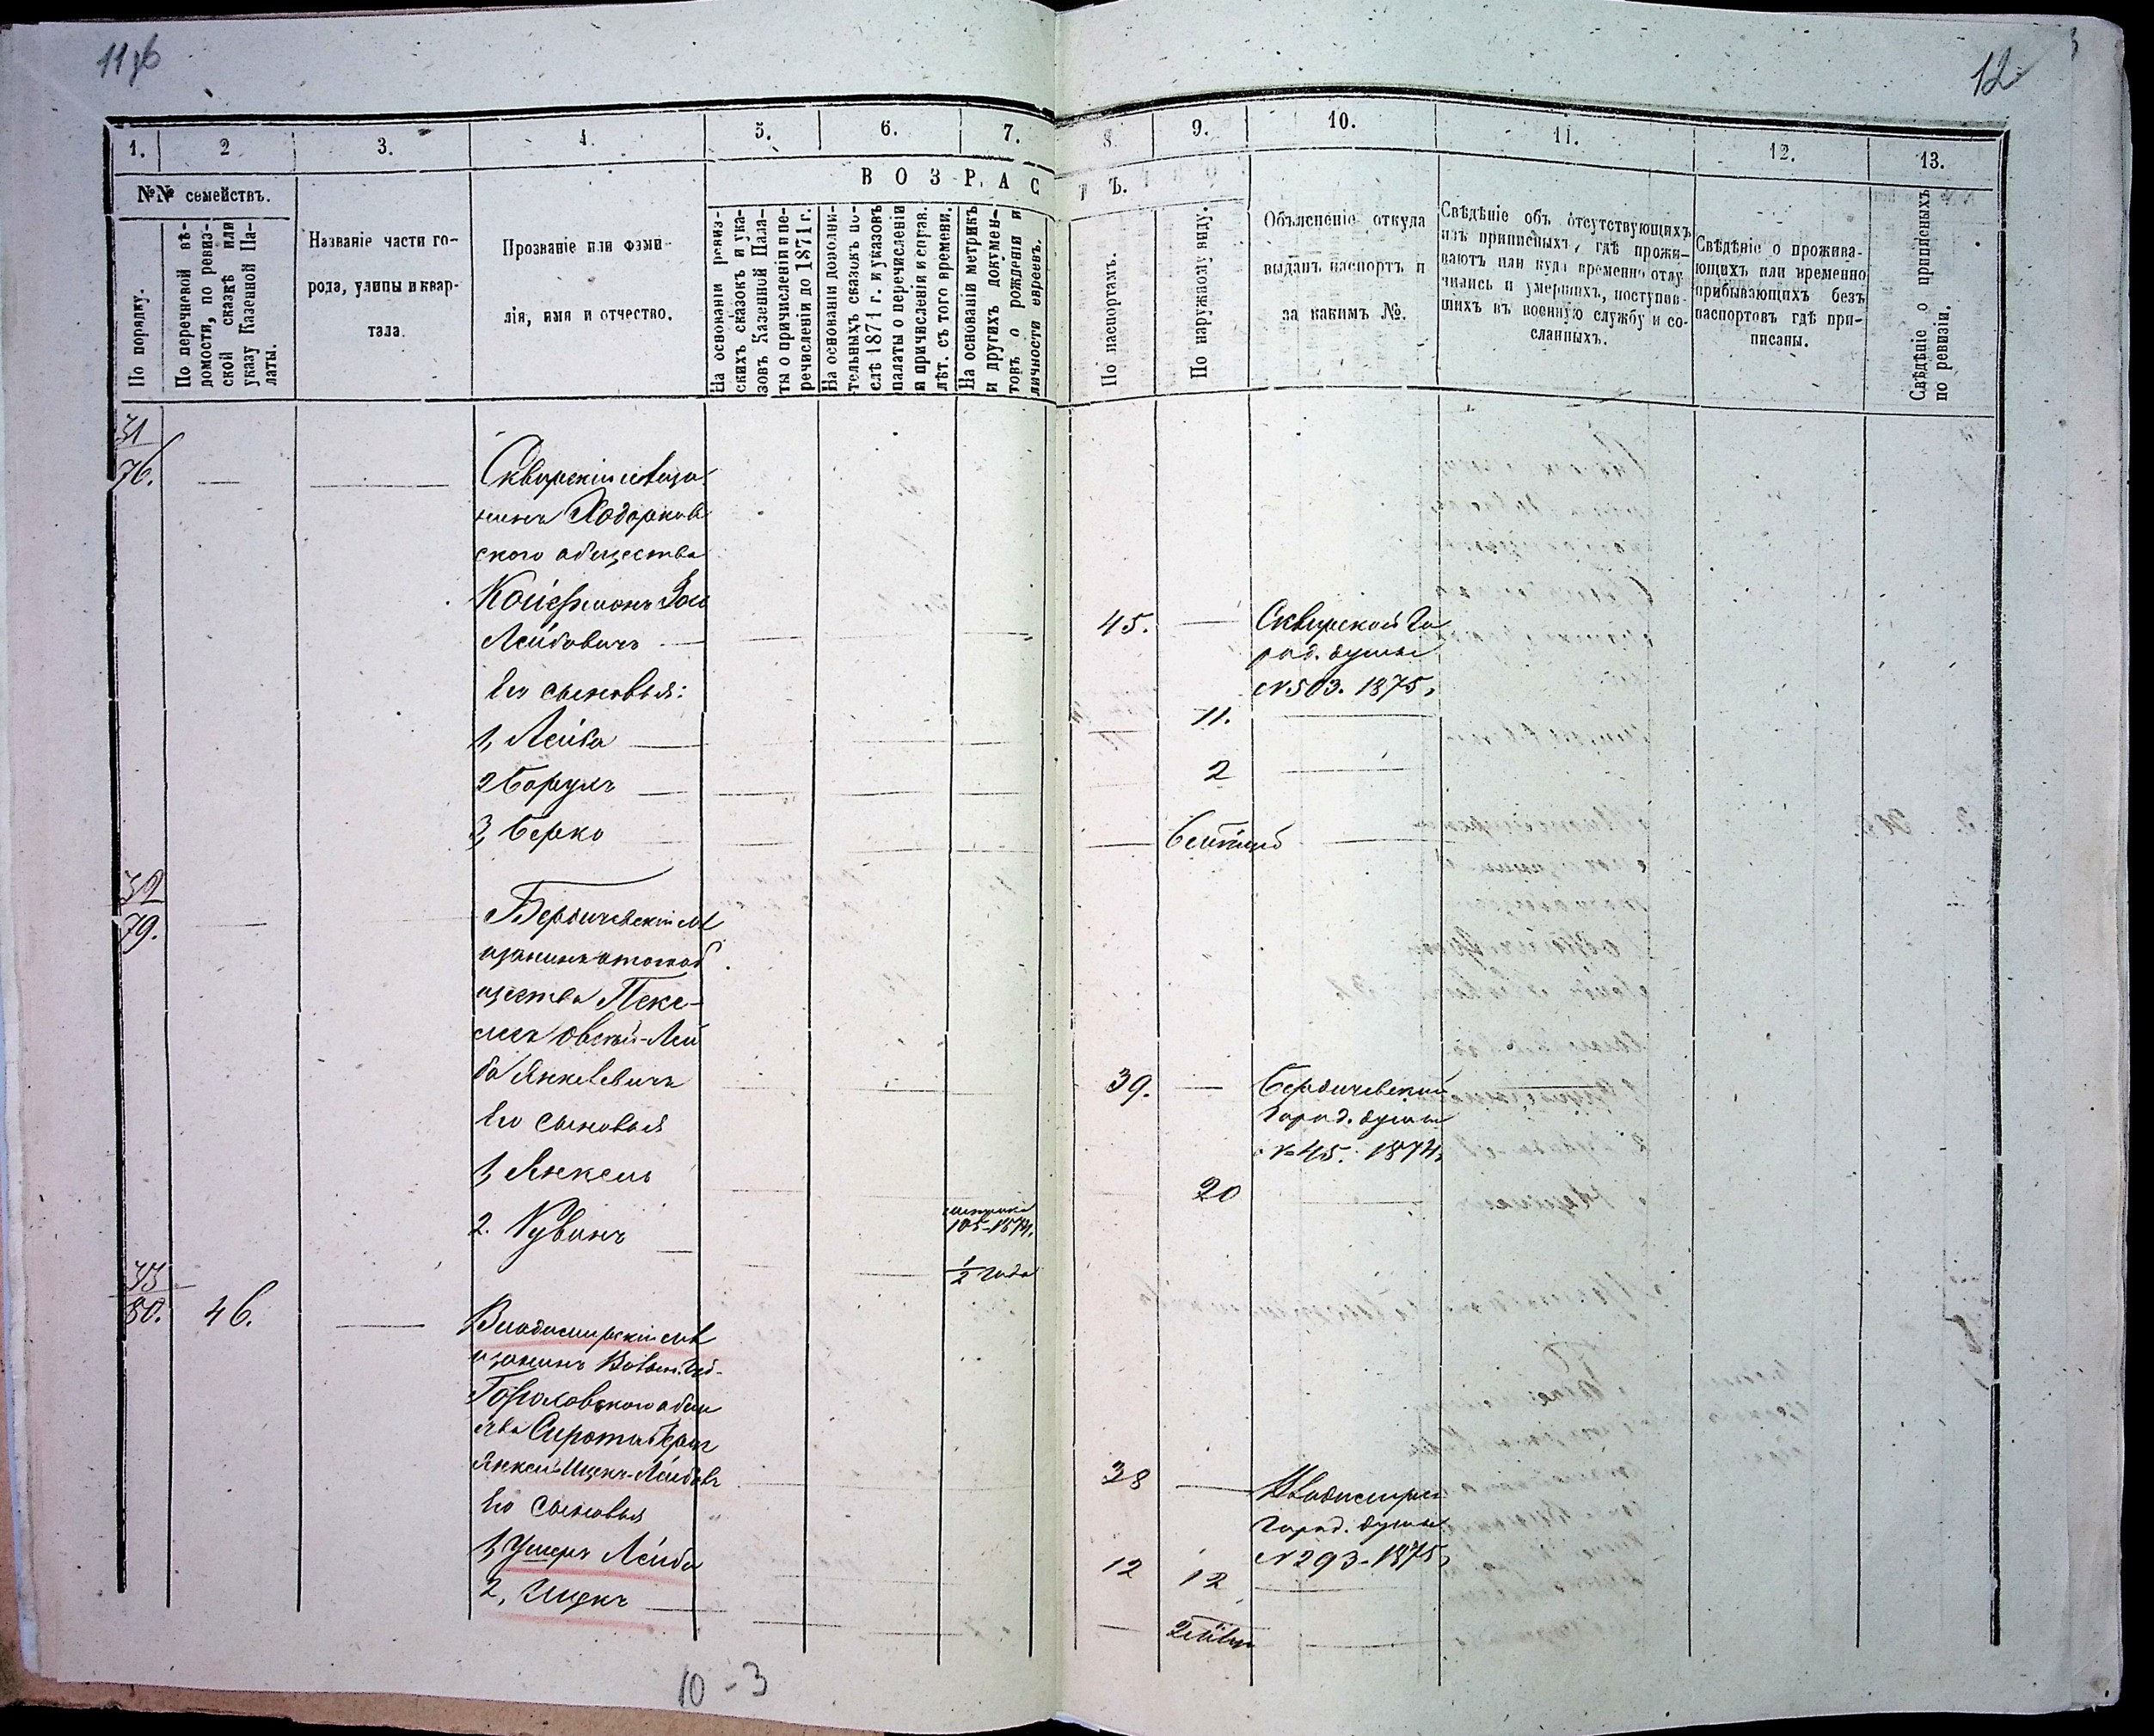 12
1.
2
3.
4.
5.
6.
7.
8.
9.
10.
11.
12.
13.
№№ семействъ.
По порядку.
По перечневой вѣ-
домости, по ревиз-
ской сказкѣ или
указу Казенной Па-
латы.
Названіе части го-
рода, улицы и квар-
тала.
Прозваніе или фами-
лія, имя и отчество.
ВОЗРАС
Т Ъ.
На основаніи ревиз-
скихъ сказокъ и ука-
зовъ Казенной Пала-
ты о причисленіи и пе-
речисленіи до 1871 г.
На основаніи дополни-
тельныхъ сказокъ по-
слѣ 1871 г. и указовъ
палаты о перечисленіи
и причисленіи и справ.
лѣт. съ того времени.
На основаніи метрикъ
и другихъ докумен-
товъ о рожденіи и
личности евреевъ.
По паспортамъ.
По наружному виду.
Объясненіе откуда
выданъ паспортъ и
за какимъ №.
Свѣдѣніе объ отсутствующихъ
изъ приписныхъ, гдѣ прожи-
ваютъ или куда временно отлу-
чились и умершихъ, поступив-
шихъ въ военную службу и со-
сланныхъ.
Свѣдѣніе о прожива-
ющихъ или временно
прибывающихъ безъ
паспортовъ гдѣ при-
писаны.
Свѣдѣніе о приписныхъ
по ревизіи.
31
76.
Сквирскій мѣща-
нинъ Ходорков
ского общества
Койфманъ
Лейбовичъ
45.
Сквирской Го
род. думы
№ 503. 1875,
Его сыновья:
1, Лейба
11.
2 Борухъ
2
3, Берко
32
79.
Бердичевскій мѣ
щанинъ того об
щества
Лей
ба Янкелевичъ
39.
Бердичевской
Город. думы
№ 45. 1874,
Его сыновья
1, Янкель
20
2. Рувинъ
метрика
105-1874,
1/2 года
33
80.
46.
Владимірскій мѣ
щанинъ
Сирота
Янкель-Ицекъ-Лейбовъ
38
Владимірск
Город. думы
№ 293-1875,
Его сыновья
1, Ушеръ Лейба
12
12
2, Ицекъ
10-3